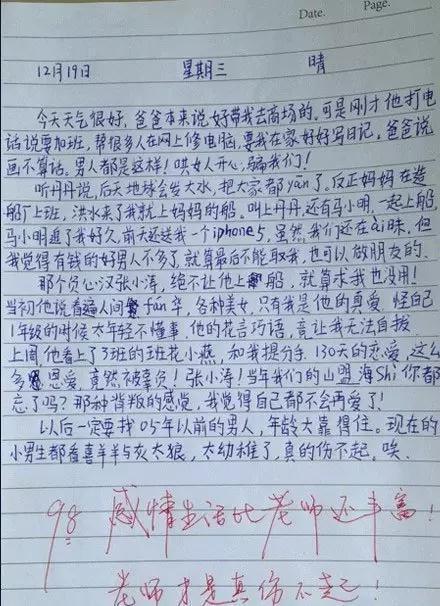 Date.    Page.
12月19日    星期三    晴
今天天气很好,爸爸本来说好带我去商场的,可是刚才他打电
话说要加班,帮很多人在网上修电脑,要我在家好好写日记,爸爸说
画不算话。男人都是这样!哄女人开心,骗我们!
听丹丹说,后天地球会发大水,把大家都yān了。反正妈妈在造
船厂上班,洪水来了我就上妈妈的船。叫上丹丹,还有马小明,一起上船,
马小明追了我好久,前天还送我一个iphone5,虽然我们还在ai昧,但
我觉得有钱的好男人不多了,就算最后不能取我,也可以做朋友的。
那个负心汉张小涛,绝不让他上船,就算求我也没用!
当初他说看遍人间fán华,各种美女,只有我是他的真爱,怪自己
1年级的时候太年轻不懂事,他的花言巧语,竟让我无法自拔
上周,他看上了3班的班花小燕,和我提分手,130天的恋爱,这么
多恩爱,竟然被辜负!张小涛!当年我们的山盟海Shi你都
忘了吗?那种背叛的感觉,我觉得自己都不会再爱了!
以后一定要找05年以前的男人,年龄大靠得住。现在的
小男生都看喜羊羊与灰太狼,太幼稚了,真的伤不起,唉、
98 感情生活比老师还丰富!
老师才是真伤不起!